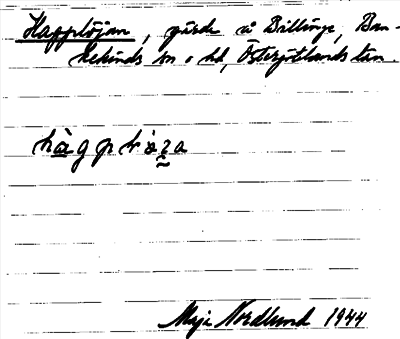 Happlöjan, gärde å Billinge, Ban-
kekinds sn o hd, Östergötlands län.
Maja Nordlund 1944